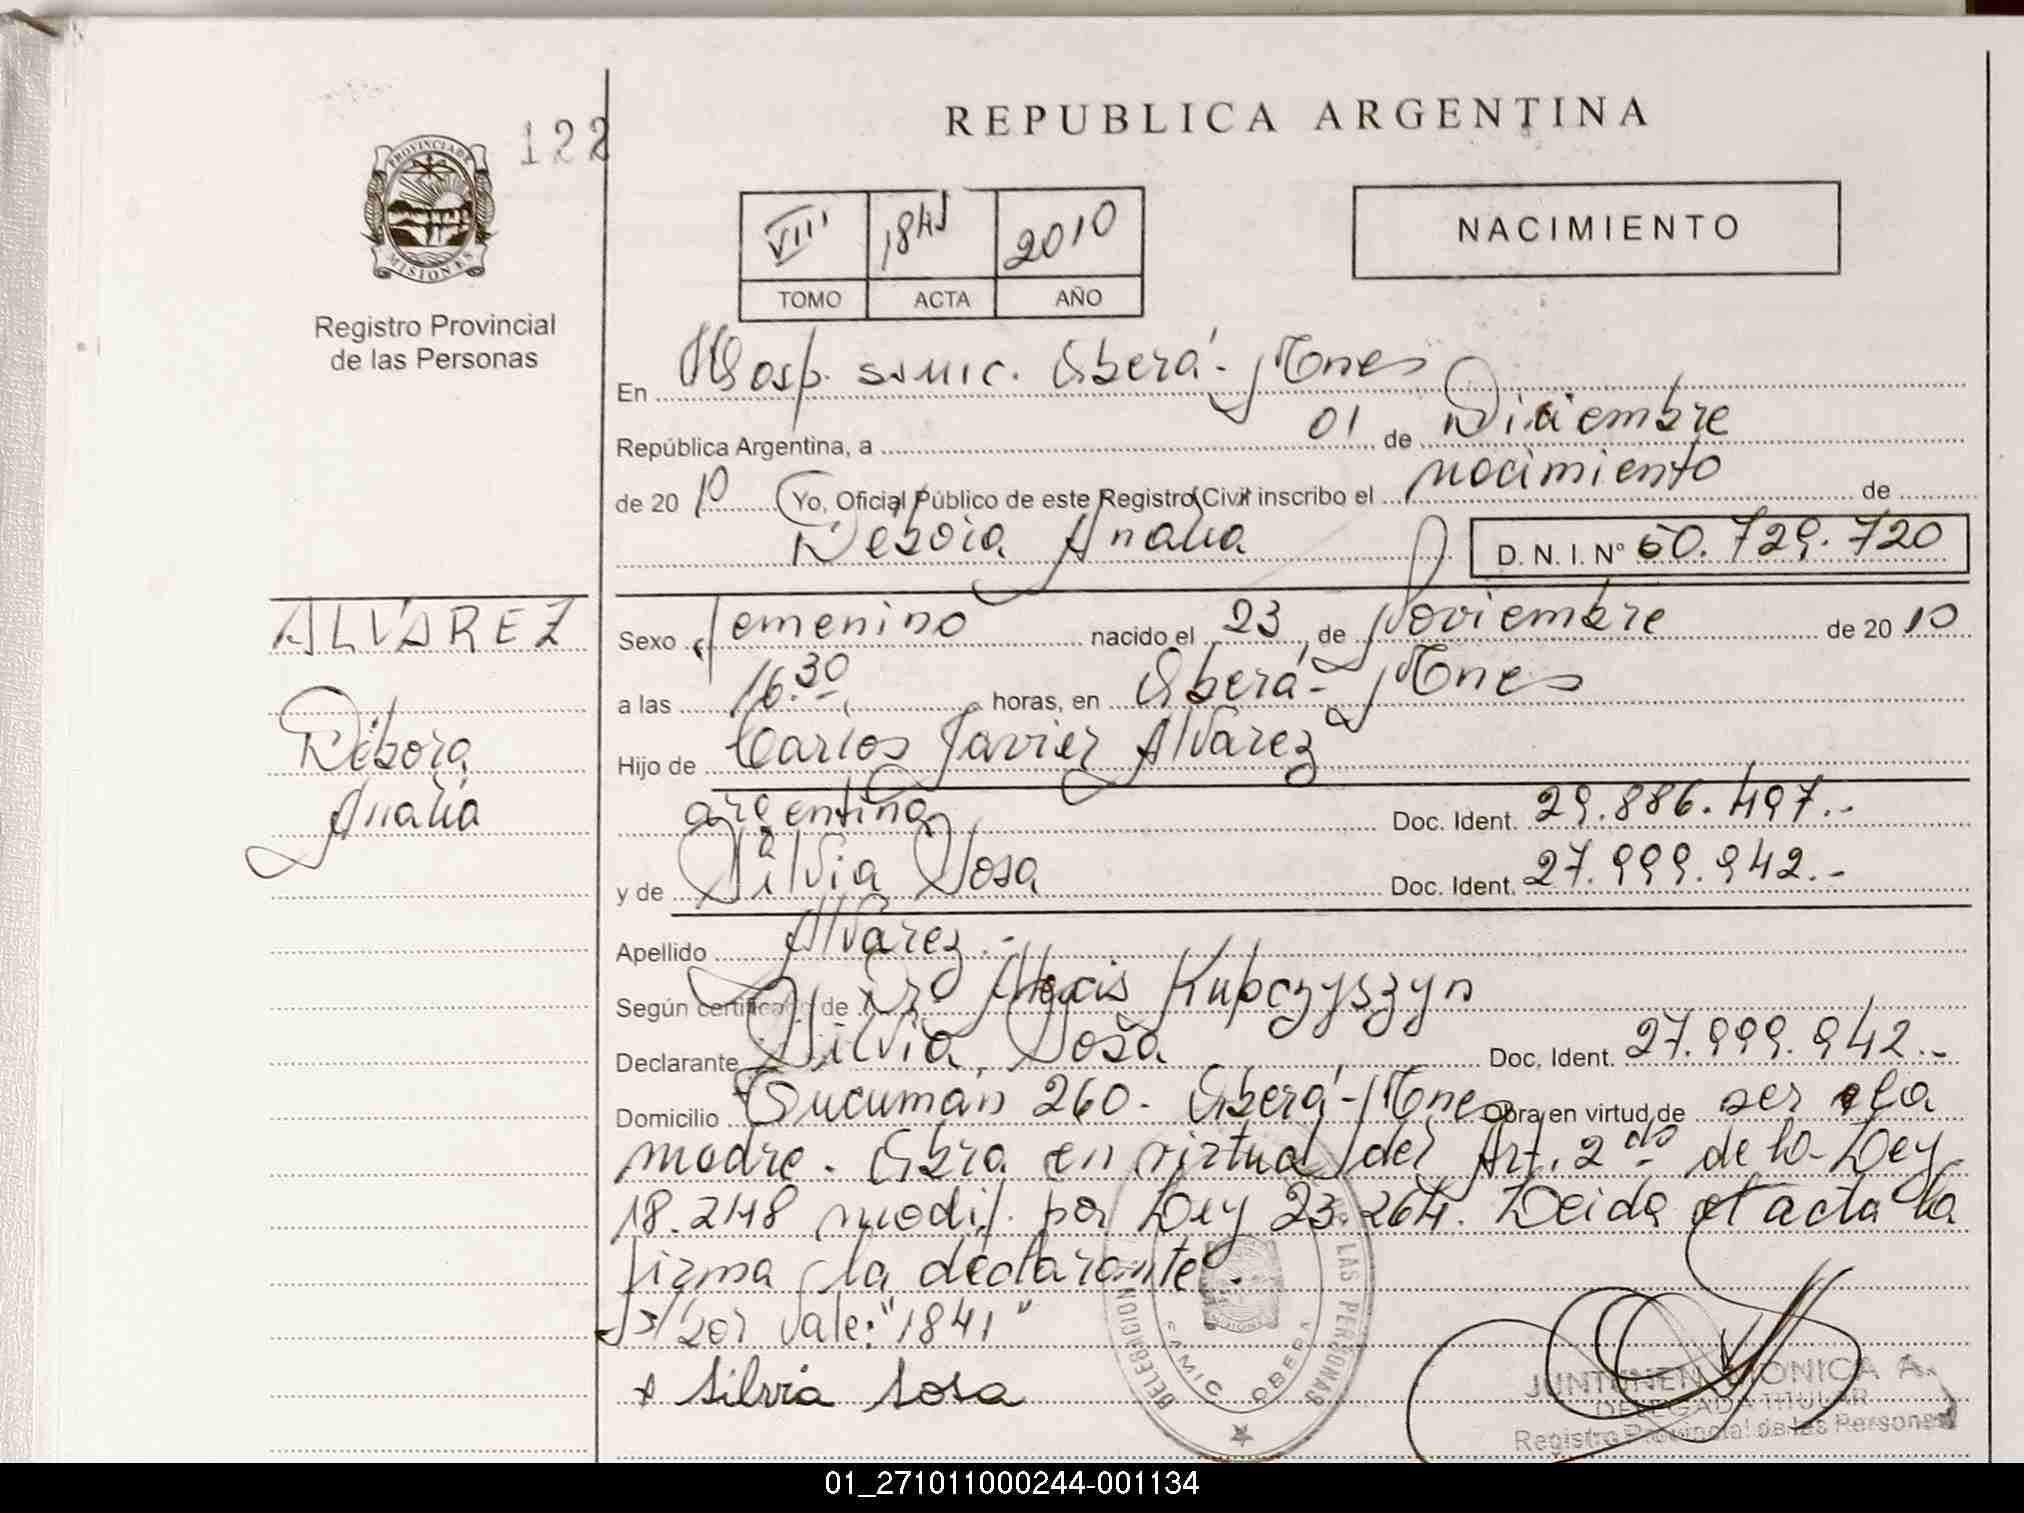 REPUBLICA ARGENTINA
122
PROVINCIA DE
MISIONES
Registro Provincial
de las Personas
VIII 1841 2010
TOMO ACTA AÑO
NACIMIENTO
En Hosp. SAMIC. Oberá - Mnes
República Argentina, a 01 de Diciembre
de 2010 Yo, Oficial Público de este Registro Civil inscribo el nacimiento de
Débora Analia D. N. I. N° 50.729.720
ALVAREZ
Débora
Analia
Sexo femenino nacido el 23 de Noviembre de 2010
a las 16.30 horas, en Oberá - Mnes
Hijo de Carlos Javier Alvarez
argentina Doc. Ident. 29.886.497.-
y de Silvia Sosa Doc. Ident. 27.999.942.-
Apellido Alvarez.-
Según certificado de Dr. Alexis Kubczyszyn
Declarante Silvia Sosa Doc. Ident. 27.999.942.-
Domicilio Tucumán 260. Oberá - Mnes Obra en virtud de ser la
madre. Obra en virtud del Art. 2do de la Ley
18.248 modif. por Ley 23.264. Leida el acta la
firma la declarante.
S/bor Vale: "1841"
Silvia Sosa
DELEGACION LAS PERSONAS
SAMIC OBERA
JUNTUNEN MONICA A.
DELEGADA TITULAR
Registro Provincial de las Personas
01_271011000244-001134